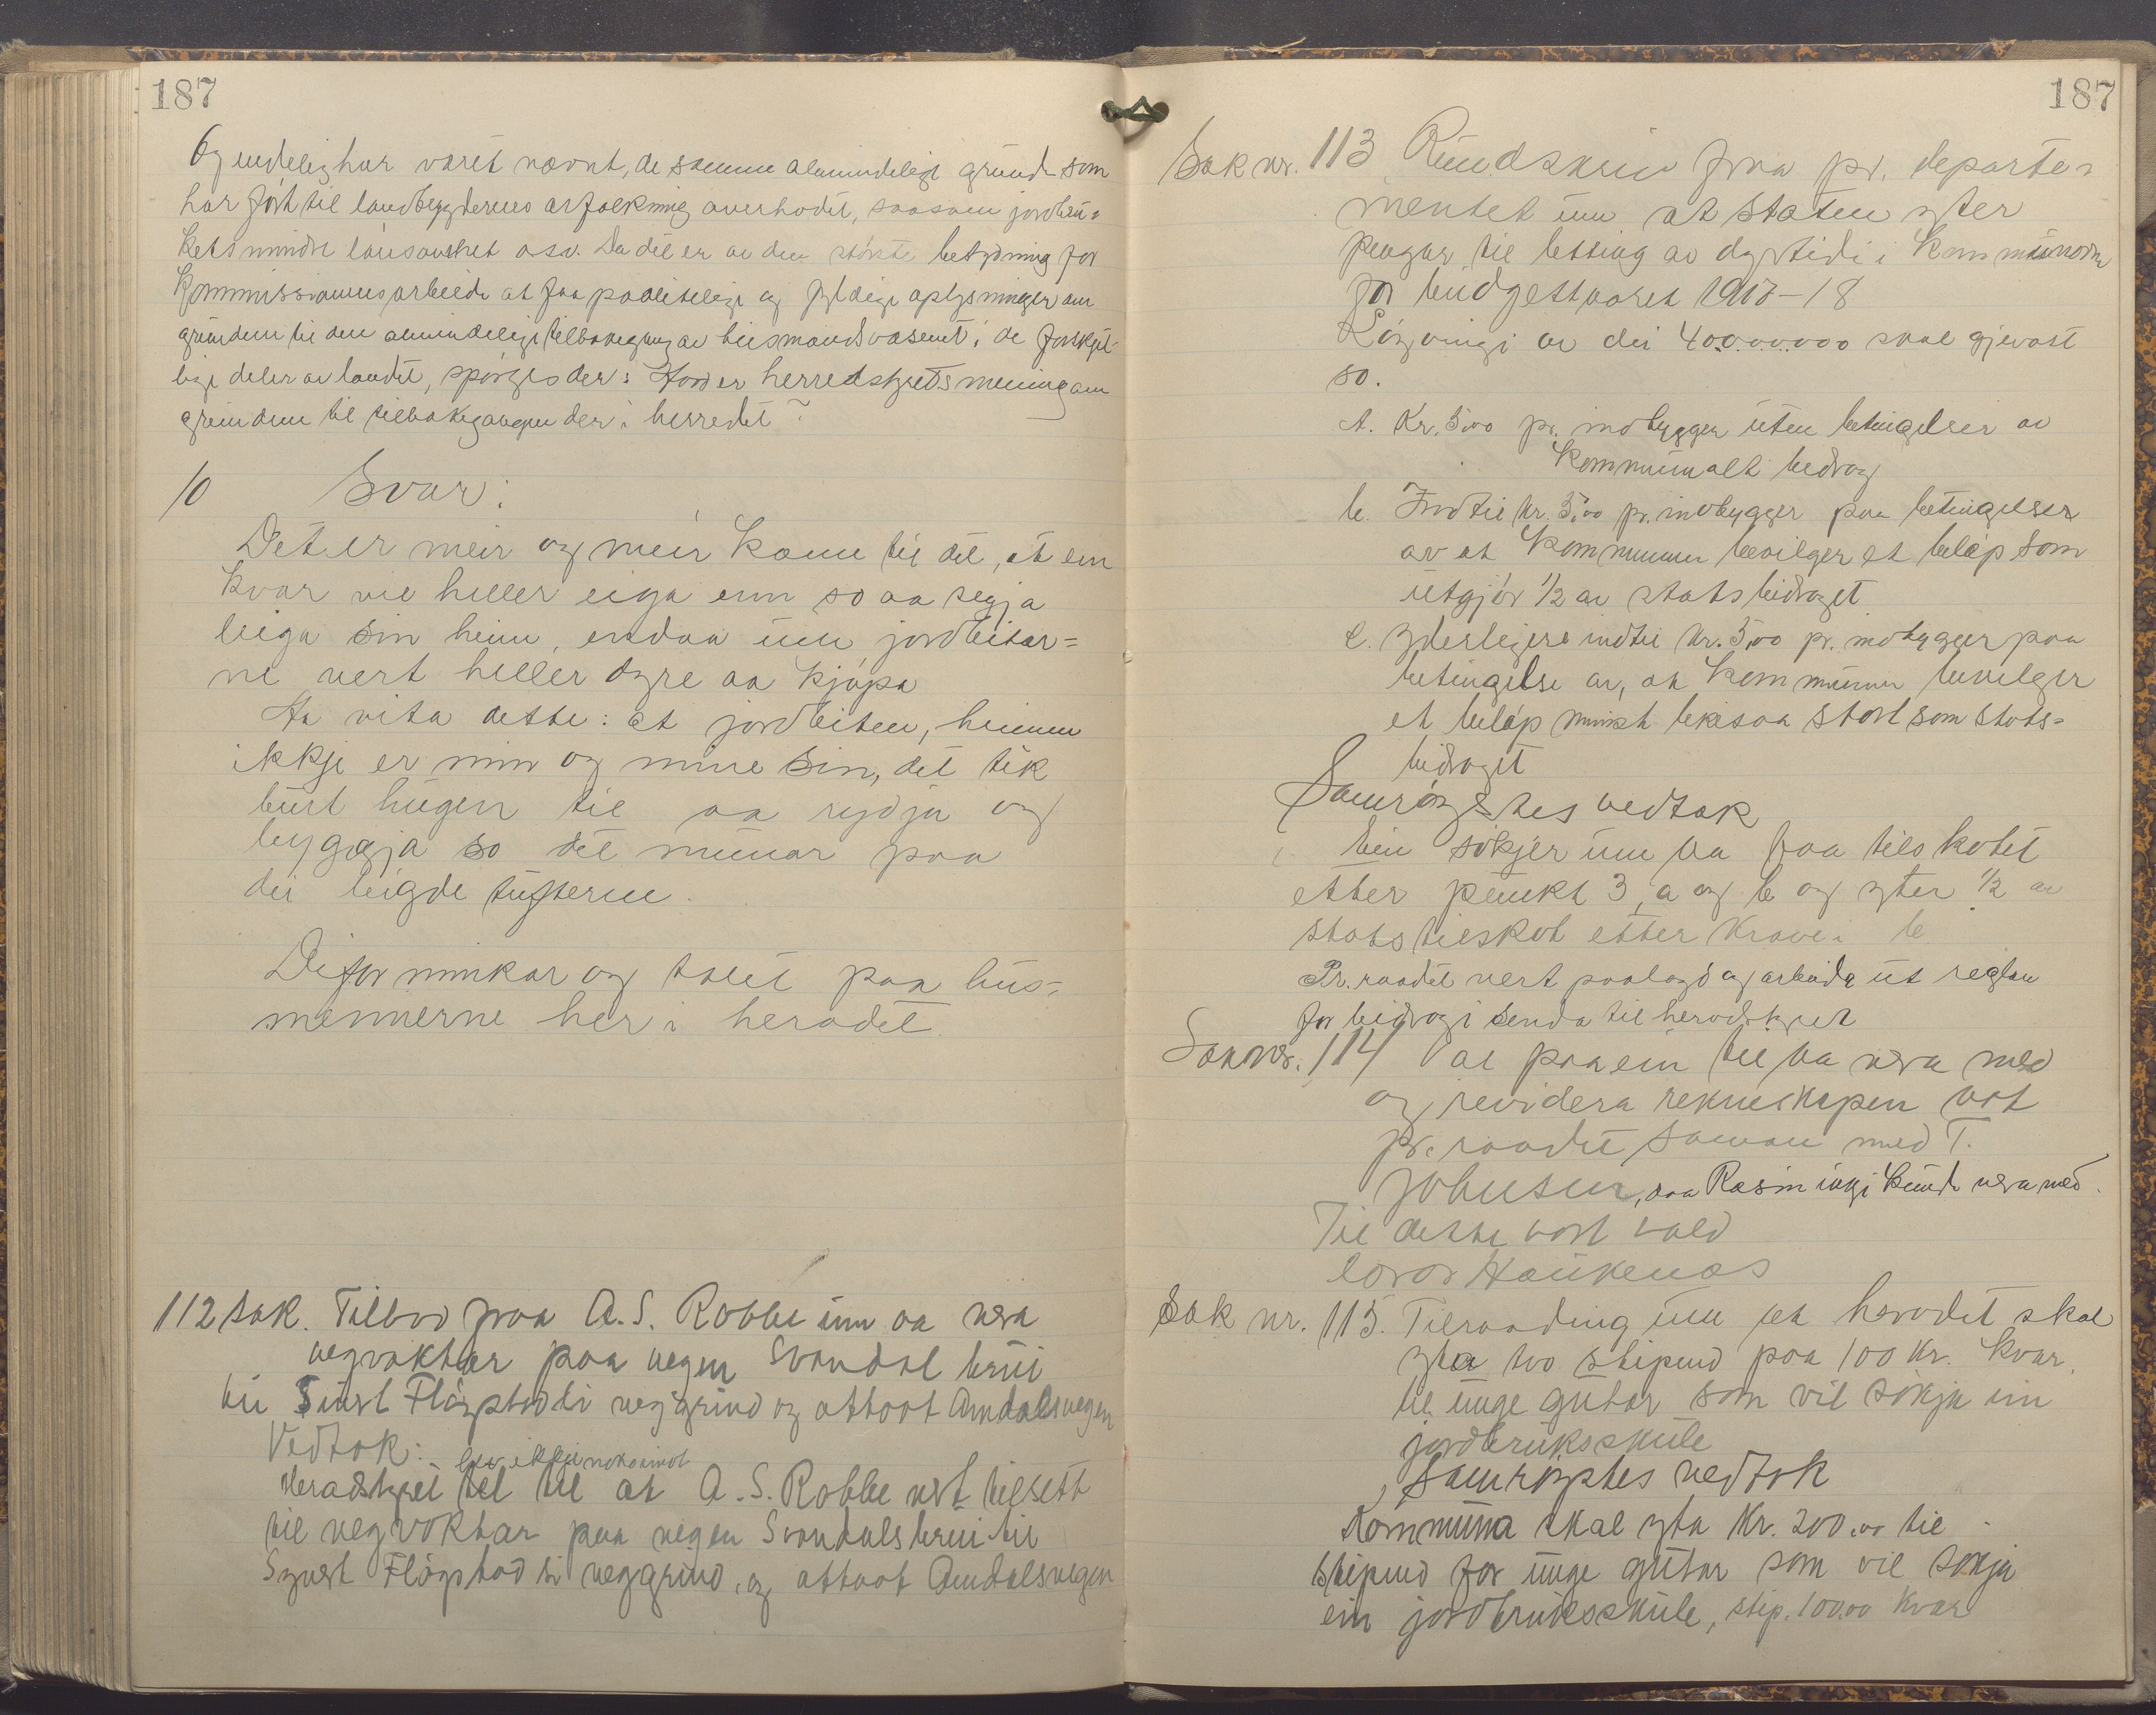 187
Og endelig har vœret nœvnt, de samme alemindelige grunde som
har fört til landbygdernes avfolkning overhodet, saasom jordbru-
kets mindre lönsomhet osv. Da det er av den störste betydning for
Kommissionens arbeide at faa paalitelige og fyldige oplysninger om
grunden til den almindelige tilbakegang av husmandsvœsenet i de forskjel-
lige deler av landet, spörges der: Hvad er herredstyrets mening om
grunden til tilbakegangen der i herredet?
10 Svar:
Det er meir og meir kome til det, at ein
kvar vil heller eiga enn so aa segja
leiga sin heim, endaa um jordbitar=
ne vert heller dyre aa kjöpa
Aa vita dette: at jordbiten, heimen
ikkje er min og mine sin, det tek
burt hugen til aa rydja og
byggja so det munar paa
dei leigde tufterne.
Difor minkar og talet paa hus=
mennerne her i heradet.
112 sak. Tilbod fraa A. S. Robbe um aa vera
vegvaktar paa vegen Svandal brui
til Sust Flögstad si veggrind og attaat Amdalsvegen
Vedtak:
hev ikkje noko imot
Heradstyret at A. S. Robbe vert tilsett
til vegvaktar paa vegen Svandalsbrui til
Synst Flögstad si veggrind, og attaat Amdalsvegen
187
Sak nr. 113 Rundskriv fraa pr. departe=
mentet um at staten yter
pengar til letting av dyrtidi i Kommunorne
for budgettaaret 1917-18
Löyvingi av dei 4000.000.00 skal gjevast
so.
A. Kr. 5,00 pr. indbygger uten betingelser av
Kommunalt bidrag
b. Indtil kr. 5,00 pr. indbygger paa betingelser
av at Kommunen bevilger et belöp som
utgjör 1/2 av statsbidraget
c. Yderligere indtil kr. 5,00 pr. indbygger paa
betingelse av, at Kommunen bevilger
et belöp minst likesaa stort som stats=
bidraget
Samröystes vedtak
Ein sökjer um aa faa tilskotet
etter punkt 3, a og b og yter 1/2 av
statstilskot etter krave i b
Pr. raadet vert paalagd og arbeida ut reglar
for bidragi senda til heradstyret
Sak nr. 114 Val paa ein til aa vera med
og revidera rekneskapen aat
pr. raadet saman med T.
Johnsen, daa Rasm ikkje kunde vera med.
Til dette vart vald
Haukenæs
Sak nr. 115. Tilraading um at heradet skal
yta tvo stipend paa 100 Kr. kvar
til unge gutar som vil sökja ein
jordbruksskule
Samröystes vedtak
Kommuna skal yta Kr. 200.00 til
stipend for unge gutar som vil sökja
ein jordbruksskule, stip. 100.00 kvar